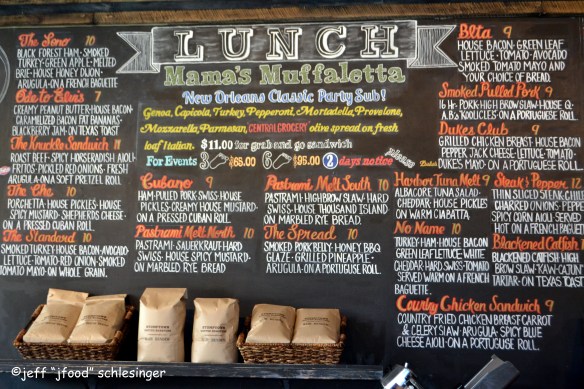 LUNCH
Mama's Muffaletta
New Orleans Classic Party Sub!
Genoa, Capicola, Turkey, Pepperoni, Mortadella, Provolone,
Mozzarella, Parmesan, CENTRAL GROCERY olive spread on fresh
loaf Italian. $11.00 for grab and go sandwich
For Events 3 $65.00 6 $95.00 2 days notice please
The Sono 10
BLACK FOREST HAM-SMOKED
TURKEY-GREEN APPLE-MELTED
BRIE-HOUSE HONEY DIJON-
ARUGULA-ON A FRENCH BAGUETTE
Ode to Elvis 7
CREAMY PEANUT BUTTER-HOUSE BACON-
CARAMELIZED BACON FAT BANANAS-
BLACKBERRY JAM-ON TEXAS TOAST
The Knuckle Sandwich 11
ROAST BEEF-SPICY HORSERADISH AIOLI-
FRITOS-PICKLED RED ONIONS-FRESH
ARUGULA-ON A SOFT PRETZEL ROLL
The Che 10
PORCHETTA-HOUSE PICKLES-HOUSE
SPICY MUSTARD-SHEPHERDS CHEESE-
ON A PRESSED CUBAN ROLL
The Standard 10
TURKEY-HOUSE BACON-AVOCADO-
LETTUCE-TOMATO-RED ONION-SMOKED
TOMATO MAYO-ON WHOLE GRAIN.
Cubano 9
HAM-PULLED PORK-SWISS-HOUSE
PICKLES-CREAMY HOUSE MUSTARD-
ON A PRESSED CUBAN ROLL.
Pastrami Melt North 10
PASTRAMI-SAUERKRAUT-HARD
SWISS-HOUSE SPICY MUSTARD-
ON MARBLED RYE BREAD
Pastrami Melt South 10
PASTRAMI-HIGHBROW SLAW-HARD
SWISS-HOUSE THOUSAND ISLAND
ON MARBLED RYE BREAD.
The Spread 10
SMOKED PORK BELLY-HONEY BBQ
GLAZE-GRILLED PINEAPPLE-
ARUGULA-ON A PORTUGUESE ROLL.
Blta 9
HOUSE BACON-GREEN LEAF
LETTUCE-TOMATO-AVOCADO
SMOKED TOMATO MAYO AND
YOUR CHOICE OF BREAD.
Smoked Pulled Pork 9
16 Hr. PORK-HIGH BROW SLAW-HOUSE Q-
ON A PORTUGUESE ROLL.
Dukes Club 9
GRILLED CHICKEN BREAST-HOUSE BACON
PEPPER JACK CHEESE-LETTUCE-TOMATO-
DUKE'S MAYO-ON A PORTUGUESE ROLL.
Harbor Tuna Melt 9
ALBACORE TUNA SALAD-
CHEDDAR-HOUSE PICKLES
ON WARM CIABATTA
No Name 10
TURKEY-HAM-HOUSE BACON
GREEN LEAF LETTUCE-WHITE
CHEDDAR-HARD SWISS-TOMATO
SERVED WARM ON A FRENCH
BAGUETTE.
Country Chicken Sandwich 9
COUNTRY FRIED CHICKEN BREAST-CARROT
& CELERY SLAW-ARUGULA-SPICY BLUE
CHEESE AIOLI-ON A PORTUGUESE ROLL.
Steak & Pepper 12
THIN SLICED STEAK-CHILE
CHARRED ONIONS-PEPPERS
SPICY CORN AIOLI-SERVED
HOT ON A FRENCH BAGUETTE
Blackened Catfish
BLACKENED CATFISH-HIGH
BROW SLAW-
TARTAR-ON TEXAS TOAST
©jeff "jfood" schlesinger